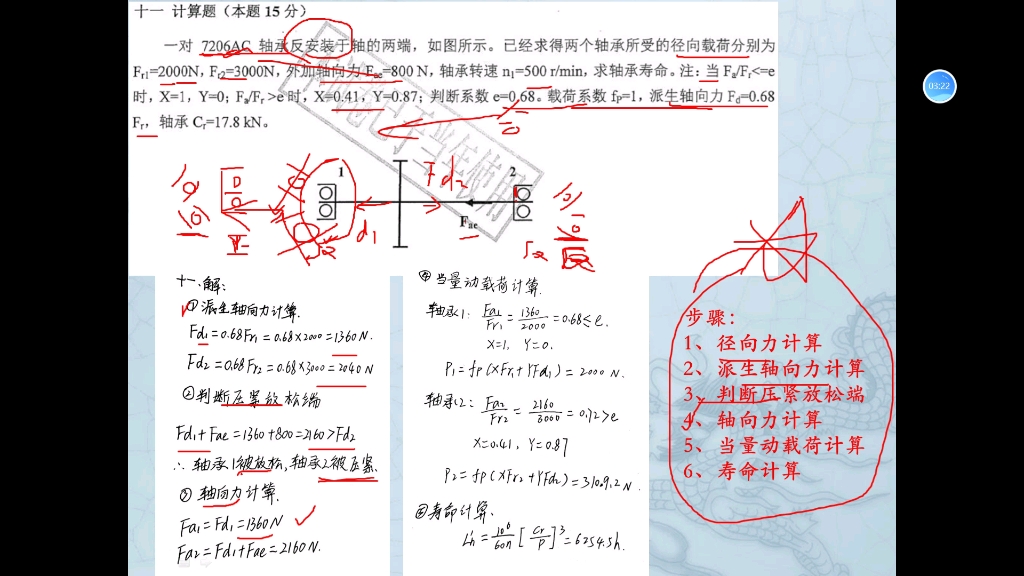 十一 计算题（本题 15 分）
一对 7206AC 轴承反安装于轴的两端，如图所示。已经求得两个轴承所受的径向载荷分别为
Fr1=2000N，Fr2=3000N，外加轴向力 Fae=800 N，轴承转速 n1=500 r/min，求轴承寿命。注：当 Fa/Fr<=e
时，X=1，Y=0；Fa/Fr >e 时，X=0.41，Y=0.87；判断系数 e=0.68。载荷系数 fP=1，派生轴向力 Fd=0.68
Fr，轴承 Cr=17.8 kN。
03:22
1
2
Fd2
d1
Fae
十一、解：
①派生轴向力计算.
Fd1=0.68Fr1=0.68×2000=1360N.
Fd2=0.68Fr2=0.68×3000=2040N
②判断压紧放松端
Fd1+Fae=1360+800=2160>Fd2
∴轴承1被放松,轴承2被压紧.
③轴向力计算.
Fa1=Fd1=1360N
Fa2=Fd1+Fae=2160N.
④当量动载荷计算.
轴承1: Fa1/Fr1=1360/2000=0.68≤e.
X=1, Y=0.
P1=fp(XFr1+YFd1)=2000N.
轴承2: Fa2/Fr2=2160/3000=0.72>e
X=0.41, Y=0.87
P2=fp(XFr2+YFd2)=3109.2N.
⑤寿命计算.
Lh=10^6/60n[Cr/P]^3=6254.5h.
步骤：
1、径向力计算
2、派生轴向力计算
3、判断压紧放松端
4、轴向力计算
5、当量动载荷计算
6、寿命计算